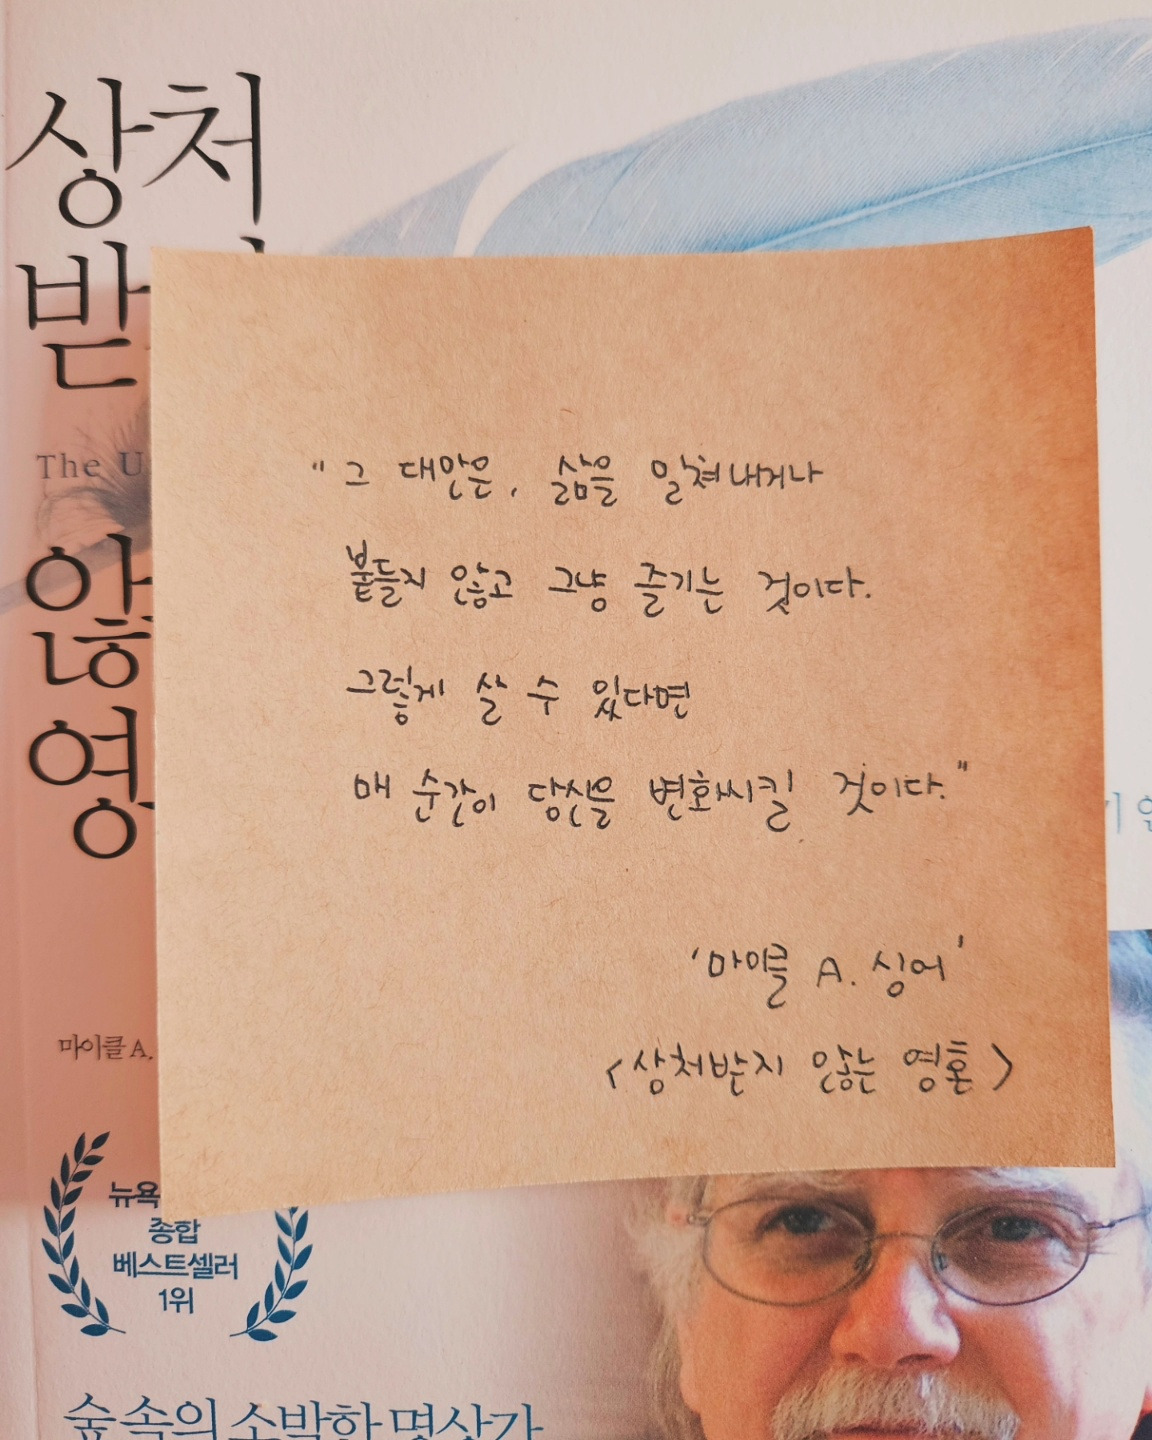 상처
받
The U
않
영
"그 대안은, 삶을 밀쳐내거나
붙들지 않고 그냥 즐기는 것이다.
그렇게 살 수 있다면
매 순간이 당신을 변화시킬 것이다."
'마이클 A. 싱어'
<상처받지 않는 영혼>
마이클 A.
뉴욕
종합
베스트셀러
1위
숲속의 소박한 명상가